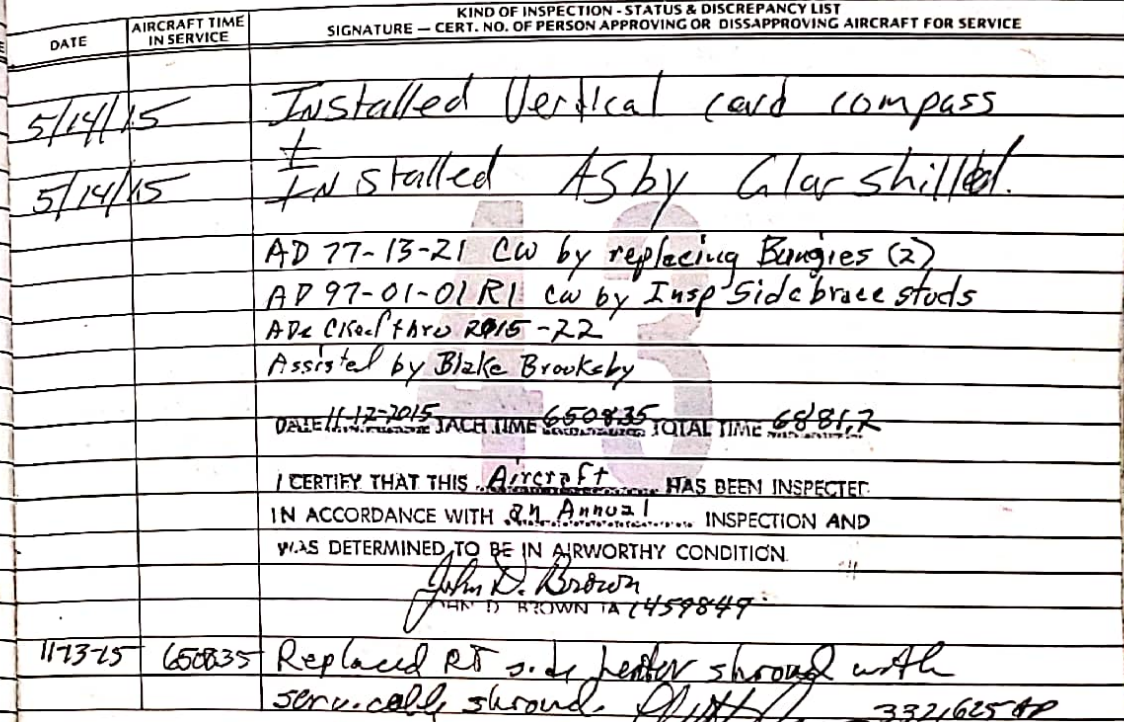 KIND OF INSPECTION - STATUS & DISCREPANCY LIST
DATE AIRCRAFT TIME IN SERVICE SIGNATURE — CERT. NO. OF PERSON APPROVING OR DISSAPPROVING AIRCRAFT FOR SERVICE
5/14/15 Installed Vertical card compass
5/14/15 Installed Asby Glarshilled.
AD 77-13-21 CW by replacing Bungies (2)
AD 97-01-01 R1 CW by Insp Sidebrace studs
ADs Cked thru 2015-22
Assisted by Blake Brooksby
DATE 11-12-2015 TACH TIME 6508.35 TOTAL TIME 6881.2
I CERTIFY THAT THIS Aircraft HAS BEEN INSPECTED
IN ACCORDANCE WITH an Annual INSPECTION AND
WAS DETERMINED TO BE IN AIRWORTHY CONDITION
John D. Brown
JOHN D. BROWN IA 1459849
11-13-15 6508.35 Replaced RT side heater shroud with
servicable shroud. 3321625 AP
43